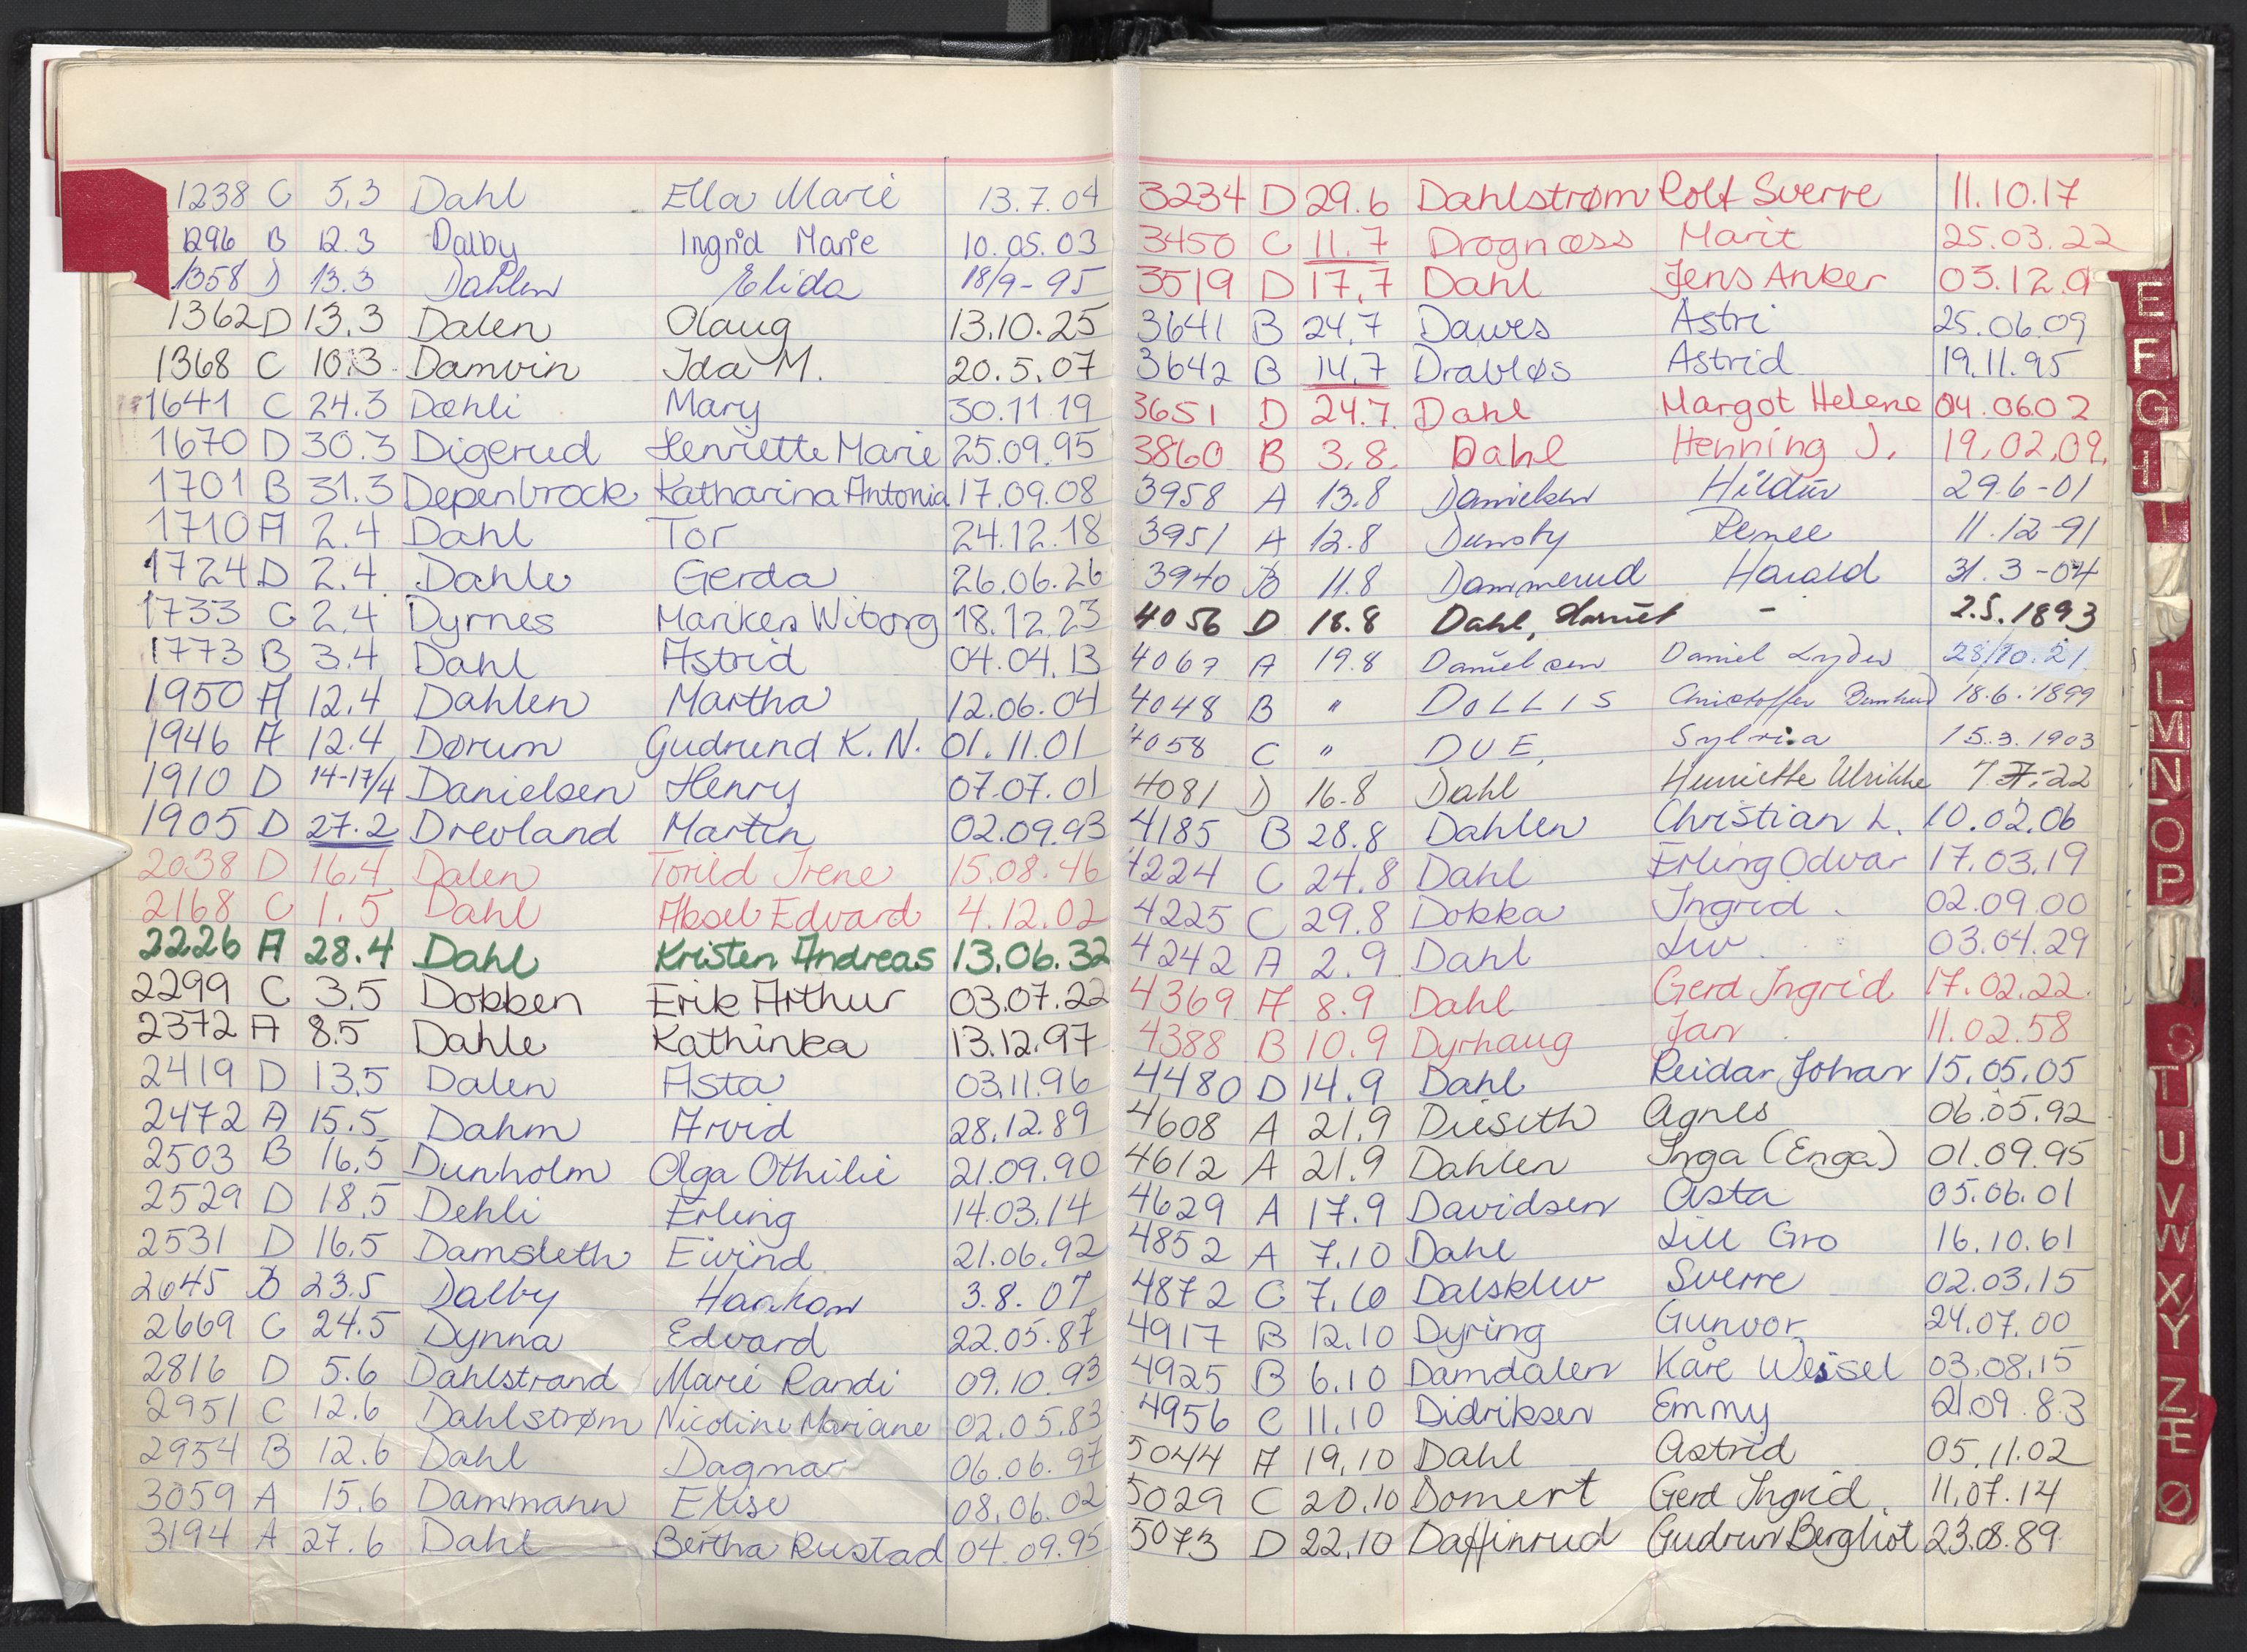 1238 C 5.3 Dahl Ella Marie 13.7.04
1296 B 12.3 Dalby Ingrid Marie 10.05.03
1358 D 13.3 Dahlen Elida 18/9-95
1362 D 13.3 Dalen Olaug 13.10.25
1368 C 10.3 Damvin Ida M. 20.5.07
1641 C 24.3 Dæhli Mary 30.11.19
1670 D 30.3 Digerud Henriette Marie 25.09.95
1701 B 31.3 Depenbrock Katharina Antonia 17.09.08
1710 A 2.4 Dahl Tor 24.12.18
1724 D 2.4 Dahle Gerda 26.06.26
1733 C 2.4 Dyrnes Mariken Wiborg 18.12.23
1773 B 3.4 Dahl Astrid 04.04.13
1950 A 12.4 Dahlen Martha 12.06.04
1946 A 12.4 Dørum Gudrund K. N. 01.11.01
1910 D 14-17/4 Danielsen Henry 07.07.01
1905 D 27.2 Drevland Martin 02.09.93
2038 D 16.4 Dalen Torild Irene 15.08.46
2168 C 1.5 Dahl Aksel Edvard 4.12.02
2226 A 28.4 Dahl Kristen Andreas 13.06.32
2299 C 3.5 Dokken Erik Arthur 03.07.22
2372 A 8.5 Dahle Kathinka 13.12.97
2419 D 13.5 Dalen Asta 03.11.96
2472 A 15.5 Dahm Arvid 28.12.89
2503 B 16.5 Dunholm Olga Othilie 21.09.90
2529 D 18.5 Dehli Erling 14.03.14
2531 D 16.5 Damsleth Eivind 21.06.92
2645 D 23.5 Dalby Haakon 3.8.07
2669 C 24.5 Dynna Edvard 22.05.87
2816 D 5.6 Dahlstrand Marie Randi 09.10.93
2951 C 12.6 Dahlstrøm Nicoline Mariane 02.05.83
2954 B 12.6 Dahl Dagmar 06.06.97
3059 A 15.6 Dammann Elise 08.06.02
3194 A 27.6 Dahl Bertha Rustad 04.09.95
3234 D 29.6 Dahlstrøm Rolf Sverre 11.10.17
3450 C 11.7 Drognæss Marit 25.03.22
3519 D 17.7 Dahl Jens Anker 03.12.0
3641 B 24.7 Dawes Astri 25.06.09
3642 B 14.7 Drabløs Astrid 19.11.95
3651 D 24.7 Dahl Margot Helene 04.06.02
3860 B 3.8. Dahl Henning J. 19.02.09.
3958 A 13.8 Danielsen Hildur 29.6-01
3951 A 12.8 Renee 11.12-91
3940 B 11.8 Dammerud Harald 31.3-04
4056 D 18.8 Dahl, - 2.5.1893
4067 A 19.8 Danielsen Daniel Lyder 28/10.21.
4048 B " DOLLIS Christoffer 18.6.1899
4058 C " DUE, Sylvia 15.3.1903
4081 D 16.8 Dahl Henriette Ulrikke 7.7.-22
4185 B 28.8 Dahlen Christian L. 10.02.06
4224 C 24.8 Dahl Erling Odvar 17.03.19
4225 C 29.8 Dokka Ingrid. 02.09.00
4242 A 2.9 Dahl Liv 03.04.29
4369 A 8.9 Dahl Gerd Ingrid 17.02.22.
4388 B 10.9 Dyrhaug Jan 11.02.58
4480 D 14.9 Dahl Reidar Johan 15.05.05
4608 A 21.9 Dieseth Agnes 06.05.92
4612 A 21.9 Dahlen Inga (Enga) 01.09.95
4629 A 17.9 Davidsen Asta 05.06.01
4852 A 7.10 Dahl Lill Gro 16.10.61
4872 C 7.10 Dalsklev Sverre 02.03.15
4917 B 12.10 Dyring Gunvor 24.07.00
4925 B 6.10 Damdalen Kåre Weisel 03.08.15
4956 C 11.10 Didriksen Emmy 21.09.83
5044 A 19.10 Dahl Astrid 05.11.02
5029 C 20.10 Domert Gerd Ingrid. 11.07.14
5073 D 22.10 Daffinrud Gudrun Bergliot 23.08.89
E
F
G
H
I
L
M
N
O
P
S
T
U
V
W
X
Y
Z
Æ
Ø